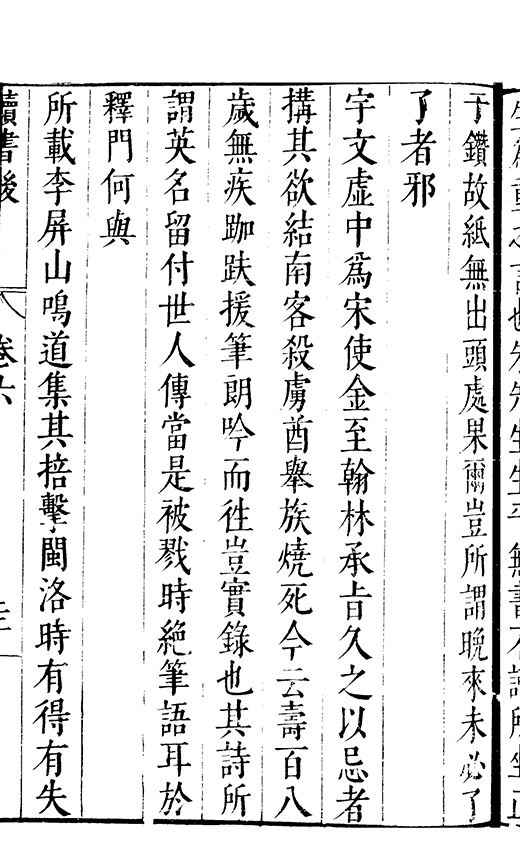 于鑽故紙無出頭處果爾豈所謂晩來未必了
了者邪
宇文虛中爲宋使金至翰林承旨久之以忌者
搆其欲結南客殺虜酋舉族燒死今云壽百八
歲無疾跏趺援筆朗吟而徃豈實錄也其詩所
謂英名留付世人傳當是被戮時絶筆語耳於
釋門何與
所載李屏山鳴道集其掊擊閩洛時有得有失
讀書後 卷六